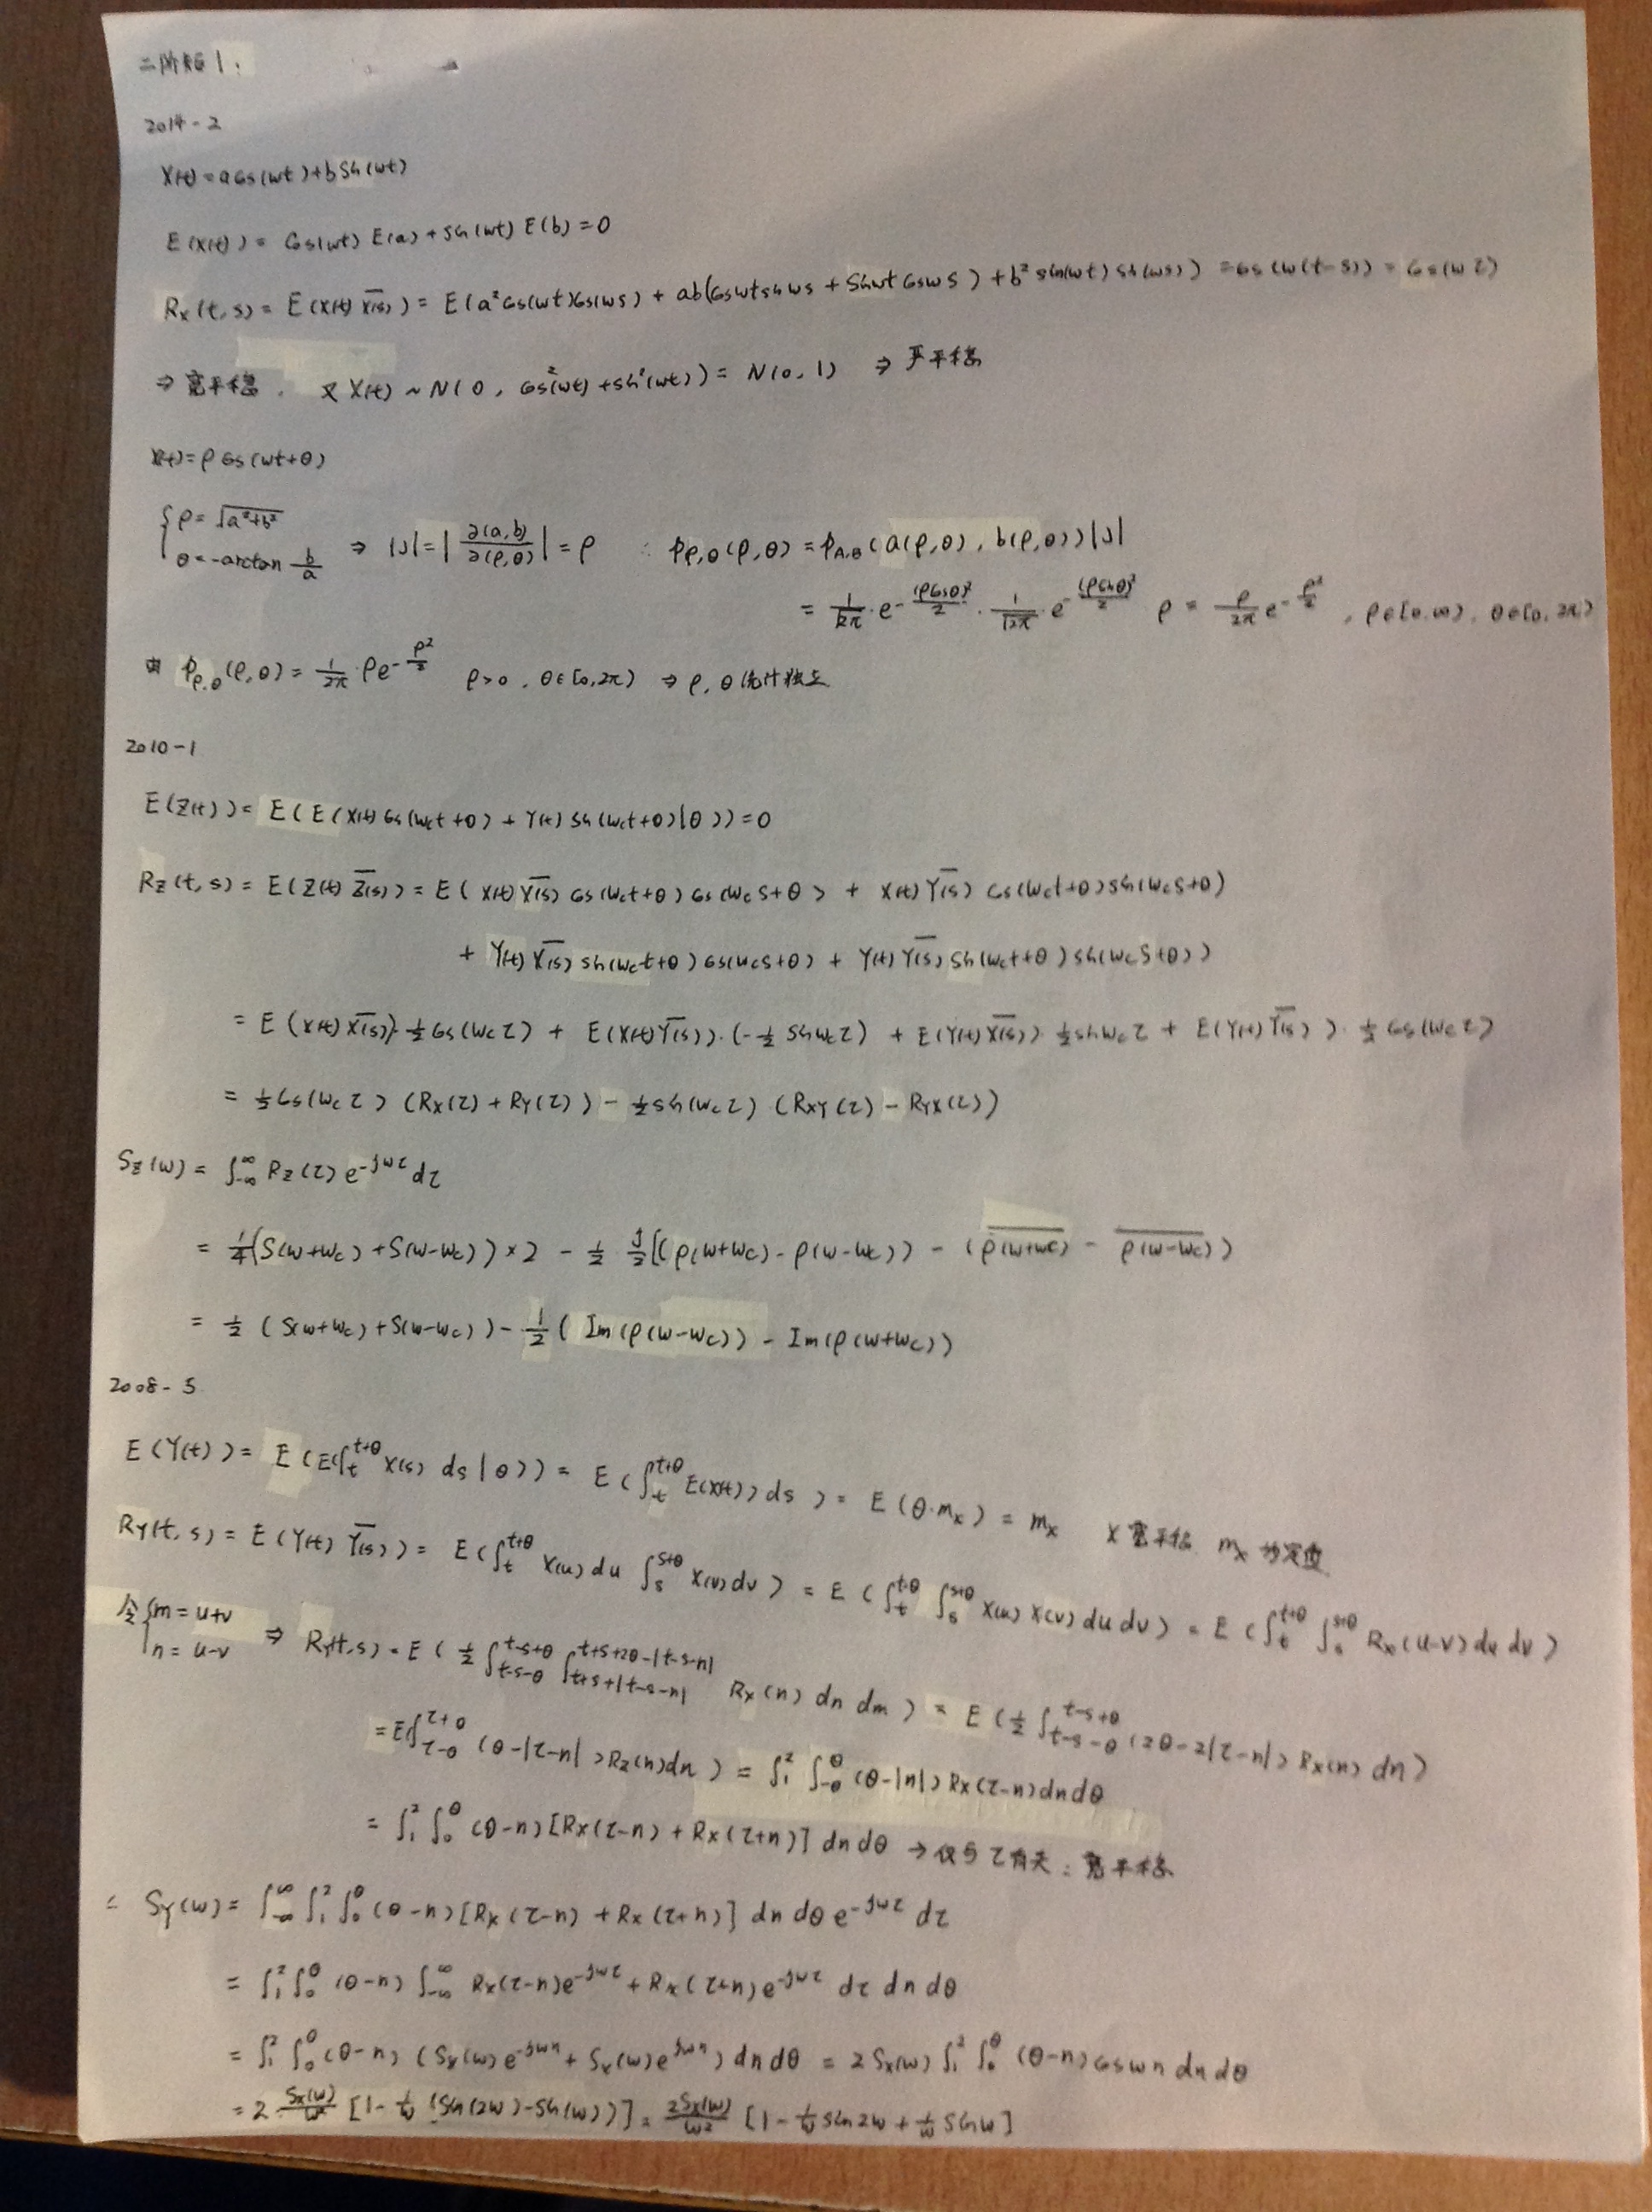 二阶矩 1.
2014 - 2
X(t) = a cos(wt) + b sin(wt)
E(X(t)) = cos(wt) E(a) + sin(wt) E(b) = 0
Rx(t,s) = E(X(t) \overline{X(s)}) = E(a² cos(wt)cos(ws) + ab(coswt sinws + sinwt cosws) + b² sin(wt) sin(ws)) = cos(w(t-s)) = cos(wτ)
⇒ 宽平稳. 又 X(t) ~ N(0, cos²(wt) + sin²(wt)) = N(0, 1) ⇒ 严平稳
X(t) = ρ cos(wt+θ)
{ρ = √(a²+b²)
θ = -arctan b/a ⇒ |J| = |∂(a,b)/∂(ρ,θ)| = ρ ∴ Pρ,θ(ρ,θ) = PA,B(a(ρ,θ), b(ρ,θ))|J|
= 1/√2π · e^{-(ρcosθ)²/2} · 1/√2π e^{-(ρsinθ)²/2} ρ = ρ/2π e^{-ρ²/2}, ρ∈[0,∞), θ∈[0,2π)
由 Pρ,θ(ρ,θ) = 1/2π · ρe^{-ρ²/2} ρ>0, θ∈[0,2π) ⇒ ρ,θ 统计独立
2010 - 1
E(Z(t)) = E(E(X(t) cos(wct+θ) + Y(t) sin(wct+θ)|θ)) = 0
Rz(t,s) = E(Z(t) \overline{Z(s)}) = E(X(t) \overline{X(s)} cos(wct+θ) cos(wcs+θ) + X(t) \overline{Y(s)} cos(wct+θ) sin(wcs+θ)
+ Y(t) \overline{X(s)} sin(wct+θ) cos(wcs+θ) + Y(t) \overline{Y(s)} sin(wct+θ) sin(wcs+θ))
= E(X(t) \overline{X(s)}) · ½ cos(wcτ) + E(X(t) \overline{Y(s)}) · (-½ sinwcτ) + E(Y(t) \overline{X(s)}) · ½ sinwcτ + E(Y(t) \overline{Y(s)}) · ½ cos(wcτ)
= ½ cos(wcτ) (Rx(τ) + RY(τ)) - ½ sin(wcτ) (RXY(τ) - RYX(τ))
Sz(w) = ∫_{-∞}^{∞} Rz(τ) e^{-jwτ} dτ
= ¼(S(w+wc) + S(w-wc)) × 2 - ½ j/2 [(ρ(w+wc) - ρ(w-wc)) - (\overline{ρ(w+wc)} - \overline{ρ(w-wc)})
= ½ (S(w+wc) + S(w-wc)) - ½ (Im(ρ(w-wc)) - Im(ρ(w+wc))
2008 - 5
E(Y(t)) = E(E(∫_t^{t+θ} X(s) ds | θ)) = E(∫_t^{t+θ} E(X(t)) ds) = E(θ·mx) = mx X 宽平稳 mx 为定值
RY(t,s) = E(Y(t) \overline{Y(s)}) = E(∫_t^{t+θ} X(u) du ∫_s^{s+θ} X(v) dv) = E(∫_t^{t+θ} ∫_s^{s+θ} X(u) X(v) du dv) = E(∫_t^{t+θ} ∫_s^{s+θ} Rx(u-v) du dv)
令{m = u+v
n = u-v ⇒ RY(t,s) = E(½ ∫_{t-s-θ}^{t-s+θ} ∫_{t+s+|t-s-n|}^{t+s+2θ-|t-s-n|} Rx(n) dn dm) = E(½ ∫_{t-s-θ}^{t-s+θ} (2θ-2|τ-n|) Rx(n) dn)
= E(∫_{τ-θ}^{τ+θ} (θ-|τ-n|) Rz(n) dn) = ∫_1^2 ∫_{-θ}^{θ} (θ-|n|) Rx(τ-n) dn dθ
= ∫_1^2 ∫_0^θ (θ-n) [Rx(τ-n) + Rx(τ+n)] dn dθ → 仅与τ有关 ∴ 宽平稳
∴ SY(w) = ∫_{-∞}^{∞} ∫_1^2 ∫_0^θ (θ-n) [Rx(τ-n) + Rx(τ+n)] dn dθ e^{-jwτ} dτ
= ∫_1^2 ∫_0^θ (θ-n) ∫_{-∞}^{∞} Rx(τ-n)e^{-jwτ} + Rx(τ+n)e^{-jwτ} dτ dn dθ
= ∫_1^2 ∫_0^θ (θ-n) (Sx(w)e^{-jwn} + Sx(w)e^{jwn}) dn dθ = 2 Sx(w) ∫_1^2 ∫_0^θ (θ-n) coswn dn dθ
= 2 Sx(w)/w² [1 - 1/w (sin(2w) - sin(w))] = 2Sx(w)/w² [1 - 1/w sin2w + 1/w sinw]